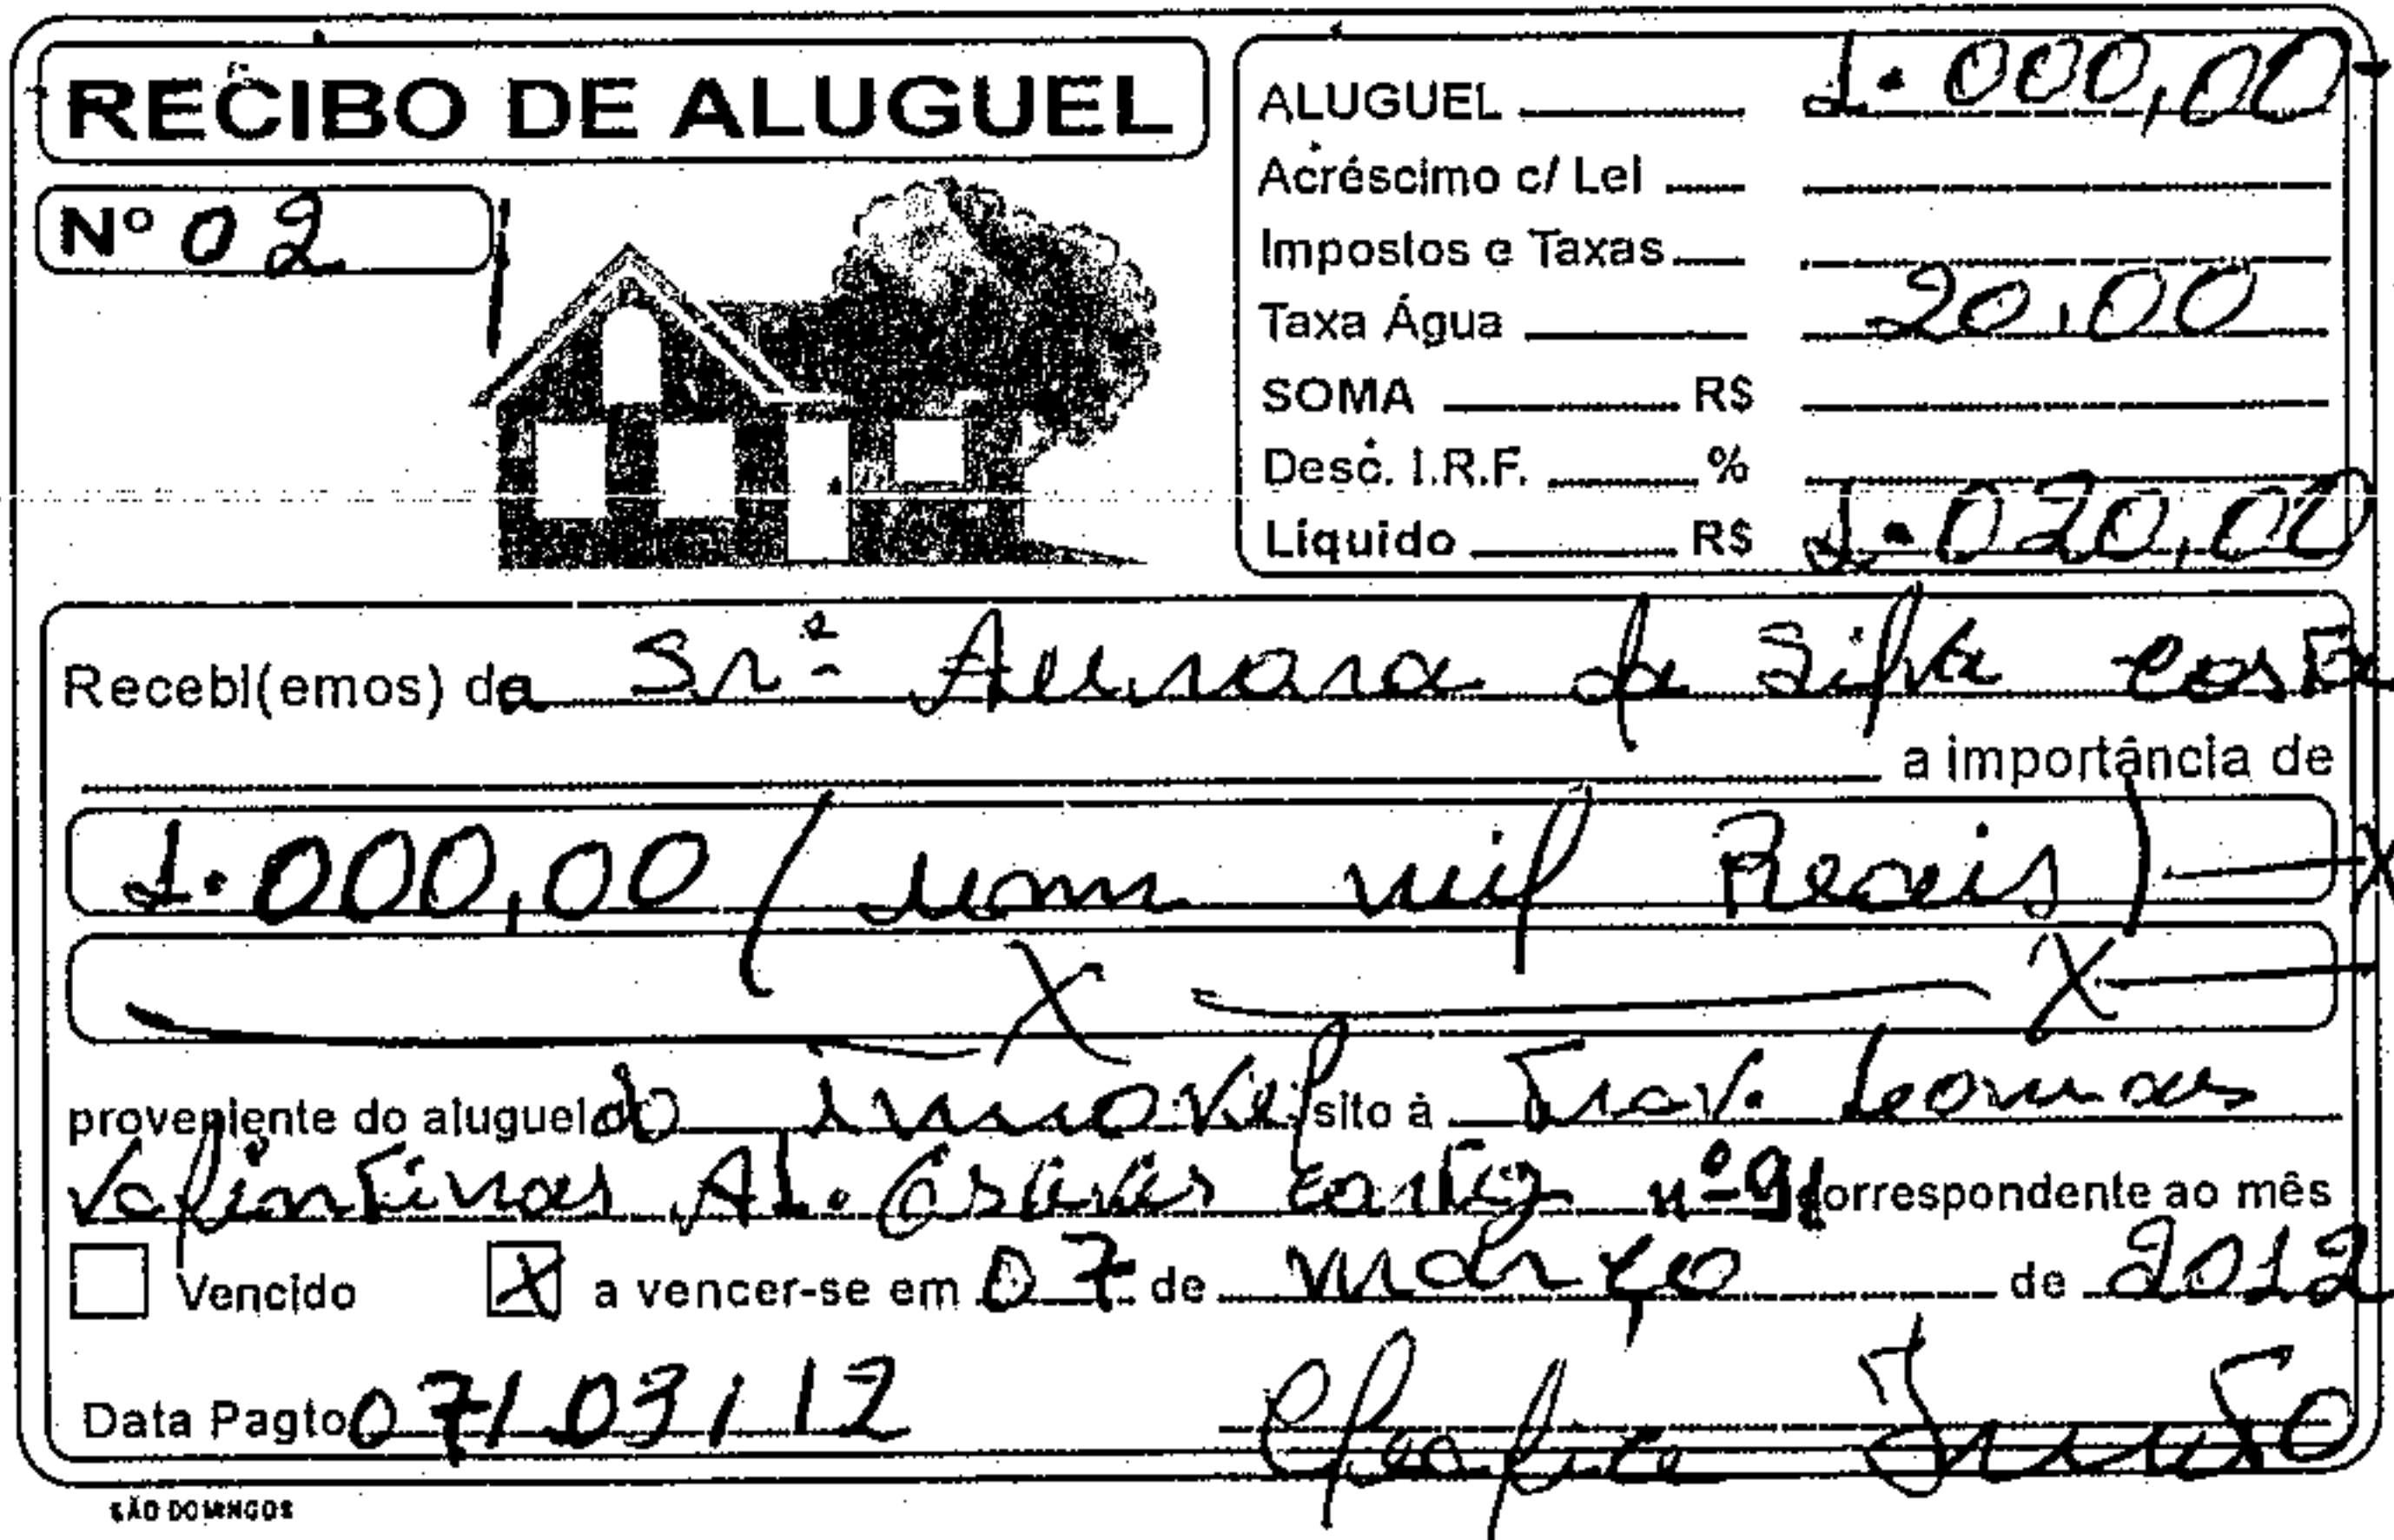 RECIBO DE ALUGUEL
Nº 02
ALUGUEL 1.000,00
Acréscimo c/ Lei
Impostos e Taxas
Taxa Água 20,00
SOMA R$
Desc. I.R.F. %
Líquido R$ 1.020,00
Recebi(emos) da Srª da Silva Costa
a importância de
1.000,00 (um mil Reais) X
X X
proveniente do aluguel do imovel sito à Trav.
Valintinas nº 91 correspondente ao mês
Vencido X a vencer-se em 07 de março de 2012
Data Pagto 07/03/12
SÃO DOMINGOS